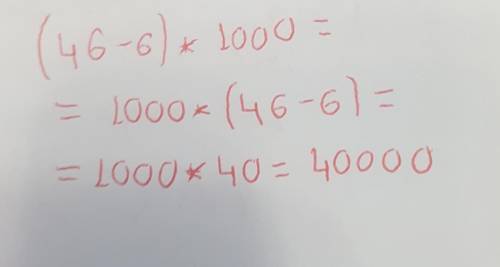 (46-6)*1000=
=1000*(46-6)=
=1000*40=40000